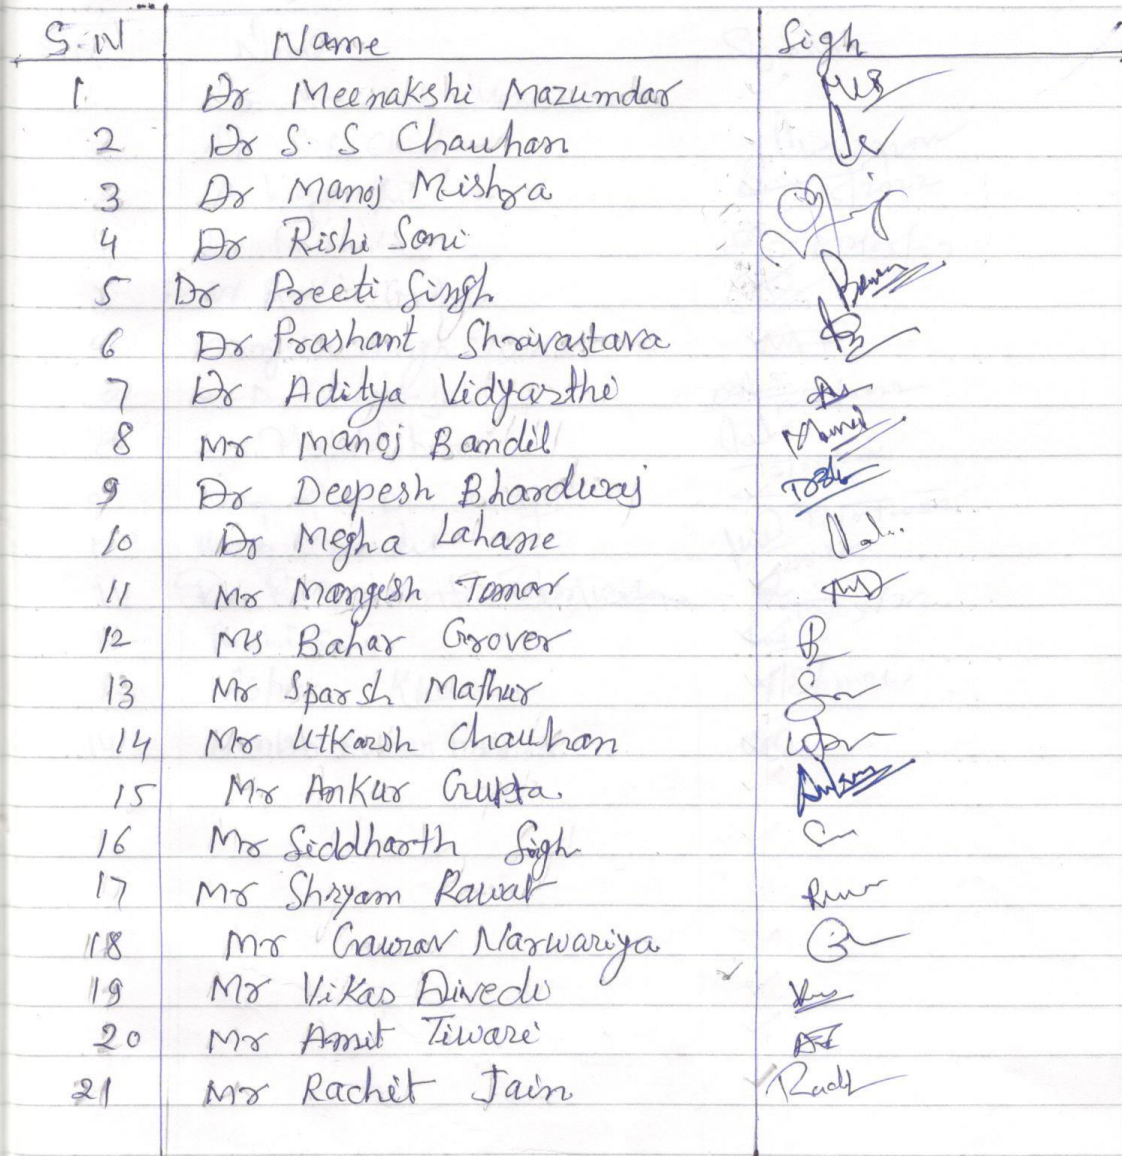 S.N Name Sigh
1. Dr Meenakshi Mazumdar
2 Dr S. S Chauhan
3 Dr Manoj Mishra
4 Dr Rishi Soni
5 Dr Preeti Singh
6 Dr Prashant Shrivastava
7 Dr Aditya Vidyarthi
8 Mr Manoj Bandil
9 Dr Deepesh Bhardwaj
10 Dr Megha Lahane
11 Mr Mangesh Tomar
12 Ms Bahar Grover
13 Mr Sparsh Mathur
14 Mr Utkarsh Chauhan
15 Mr Ankur Gupta
16 Mr Siddharth Sigh
17 Mr Shryam Rawat
18 Mr Gaurav Narwariya
19 Mr Vikas Divedi
20 Mr Amit Tiwari
21 Mr Rachit Jain